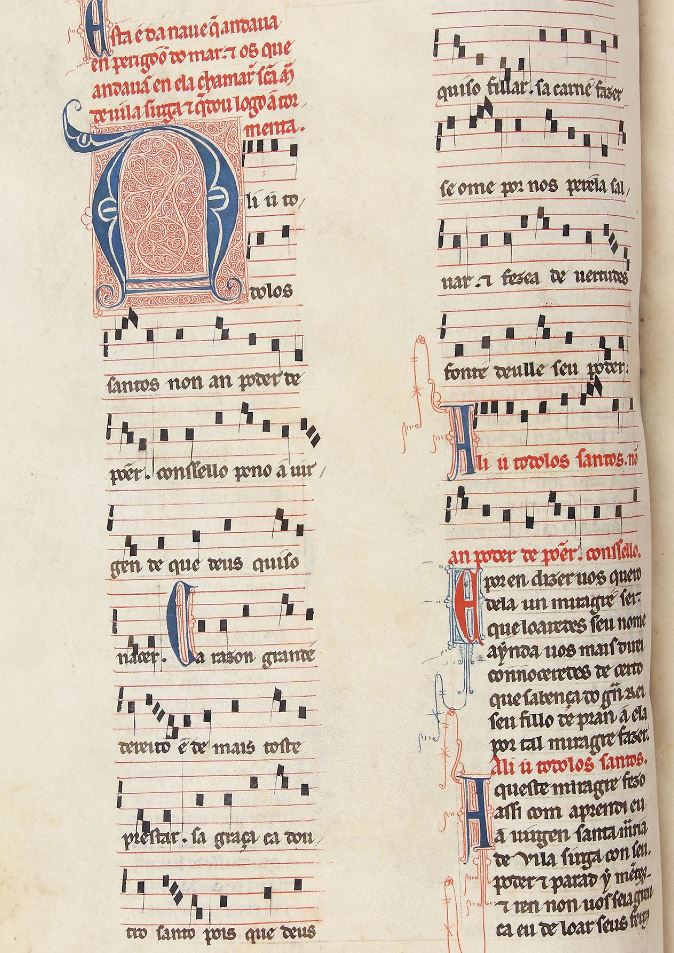 Esta é da naue q̃ andaua
en perigóo do mar. ⁊ os que
andauã en ela chamar̃ scã m̃
de uila sirga ⁊ q̃dou logo a tor
menta.
Ali u to
dolos
santos non an poder de
põer. conssello pono a uir
gen de que deus quiso
nacer. Ca razon grande
dereito é de mais toste
prestar. sa graça ca dou
tro santo pois que deus
quiso fillar. sa carne fazer
se ome por nos perela sal
uar. ⁊ fezea de uertudes
fonte deulle seu poder.
Ali u todolos santos. nõ
an poder de põer. conssello.
E por en dizer uos quero
dela un miragre ser
que loaredes seu nome
aynda uos mais direi
connoceredes de certo
que sabença do
seu fillo de pran a ela
por tal miragre fazer.
Ali u todolos santos.
Aqueste miragre fezo
assi com aprendi eu
a uirgen santa
de Vila sirga con seu.
poder ⁊ parad y
⁊ ren non uos seia
ca eu de loar seus